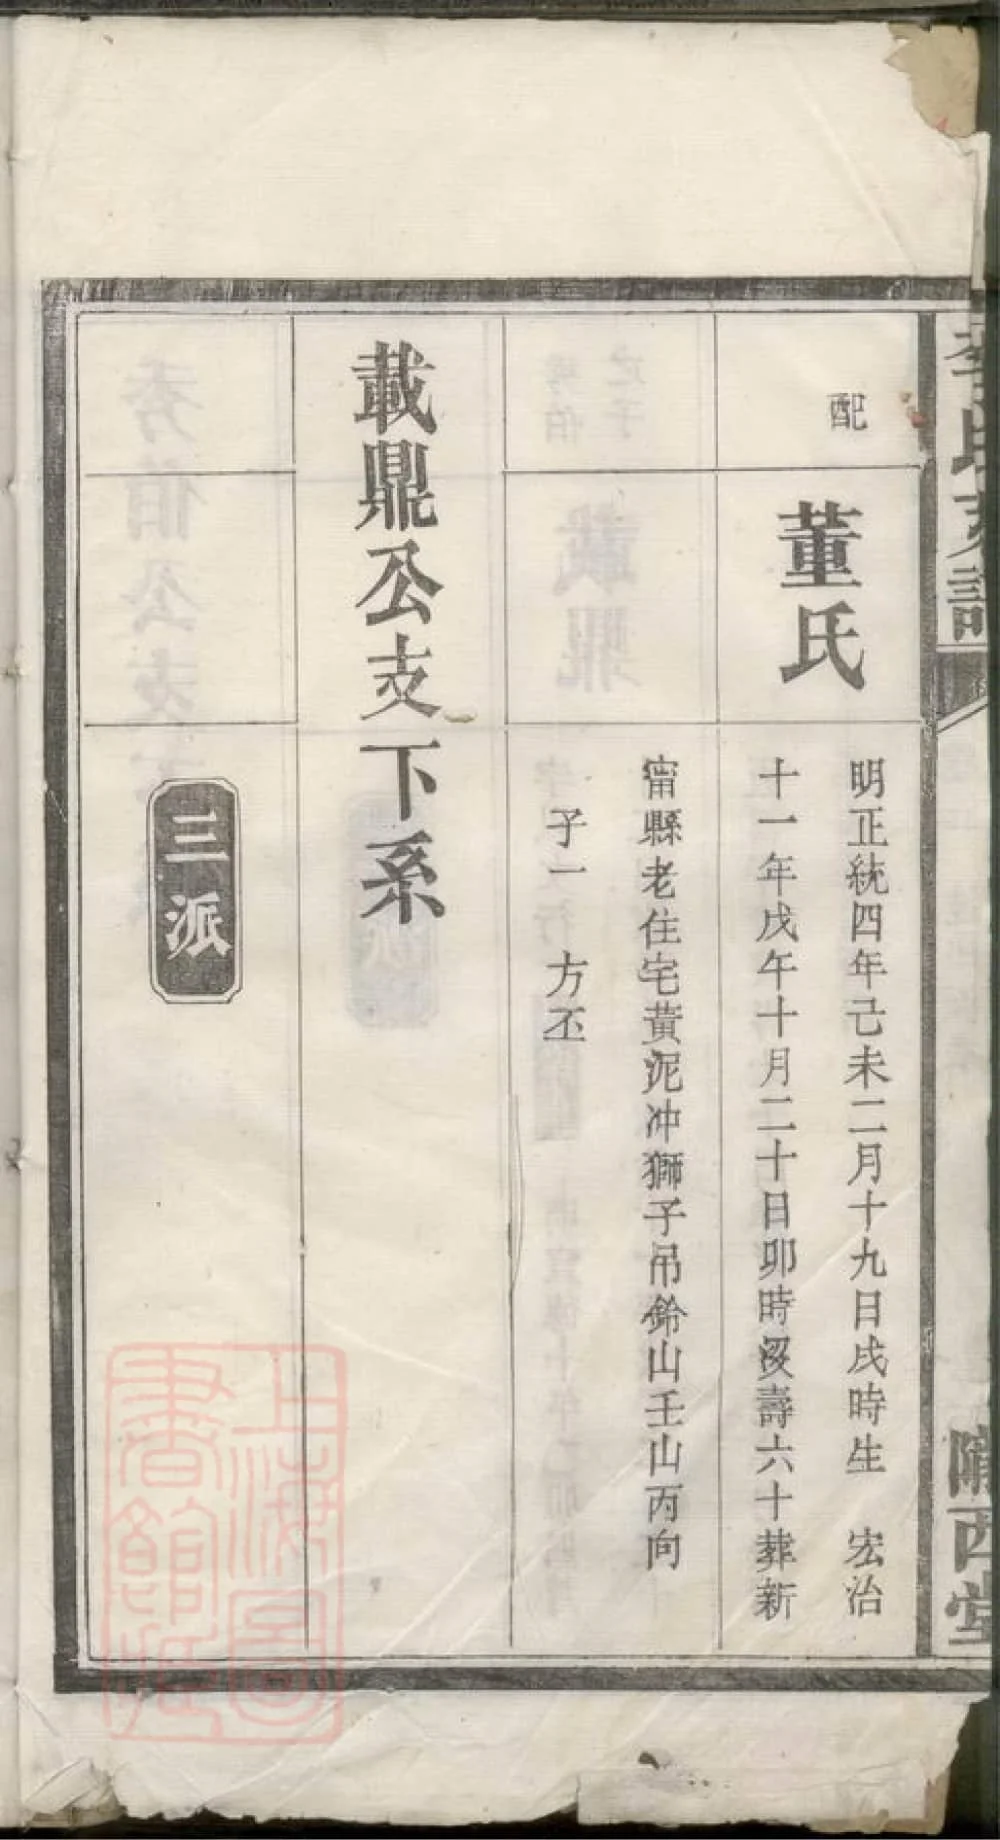 李氏支譜
隴西堂
配
董氏
明正統四年己未二月十九日戌時生 宏治
十一年戊午十月二十日卯時沒壽六十葬新
甯縣老住宅黃泥冲獅子吊鈴山壬山丙向
子一 方丕
載鼎公支下系
三派
上海圖
書館藏